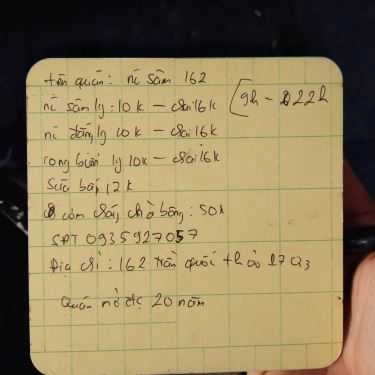 tên quán: nc sâm 162
nc sâm ly: 10k - chai 16k (9h - 22h
nc đắng ly 10k - chai 16k
rong biển ly 10k - chai 16k
sữa bắp 12k
cơm cháy chà bông: 50k
SĐT 0935927057
Địa chỉ: 162 trần quốc thảo P7 Q3
Quán nc đc 20 năm